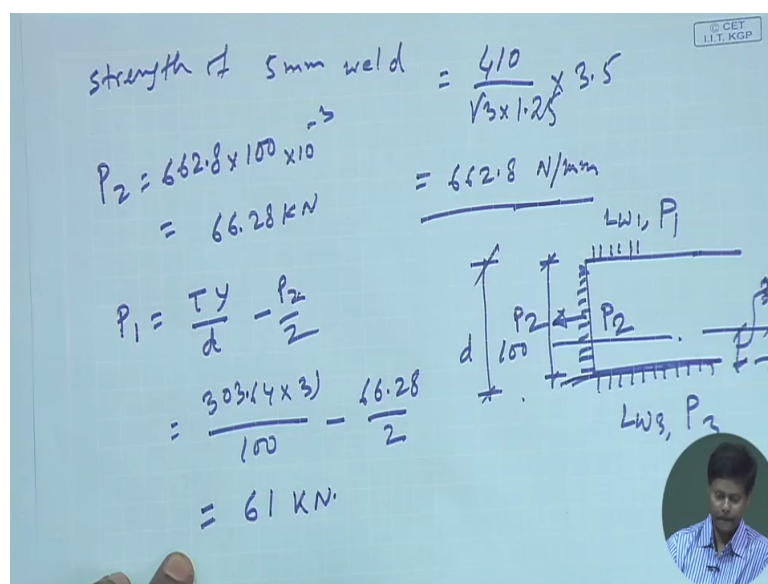 © CET
I.I.T. KGP
strength of 5mm weld = 410 / √3 × 1.25 × 3.5
= 662.8 N/mm
P2 = 662.8 × 100 × 10^-3
= 66.28 KN
P1 = TY/d - P2/2
= 303.64 × 31 / 100 - 66.28 / 2
= 61 KN.
LW1, P1
d
100
P2
P2
LW3, P3